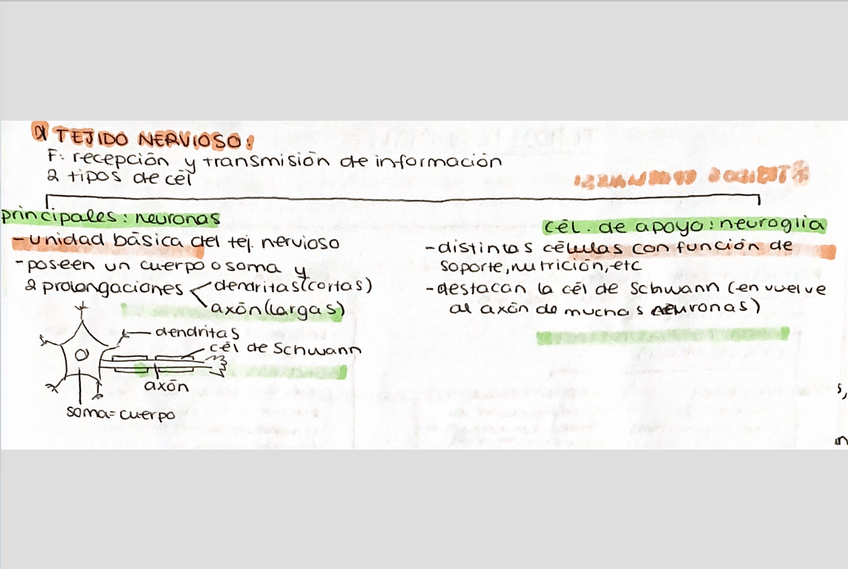 d) TEJIDO NERVIOSO:
F: recepción y transmisión de información
2 tipos de cél
principales: neuronas
-unidad básica del tej. nervioso
-poseen un cuerpo o soma y
2 prolongaciones
dendritas(cortas)
axón(largas)
dendritas
cél de Schwann
axón
soma=cuerpo
cél. de apoyo: neuroglia
-distintas células con función de
soporte, nutrición, etc
-destacan la cél de Schwann (envuelve
al axón de muchas neuronas)